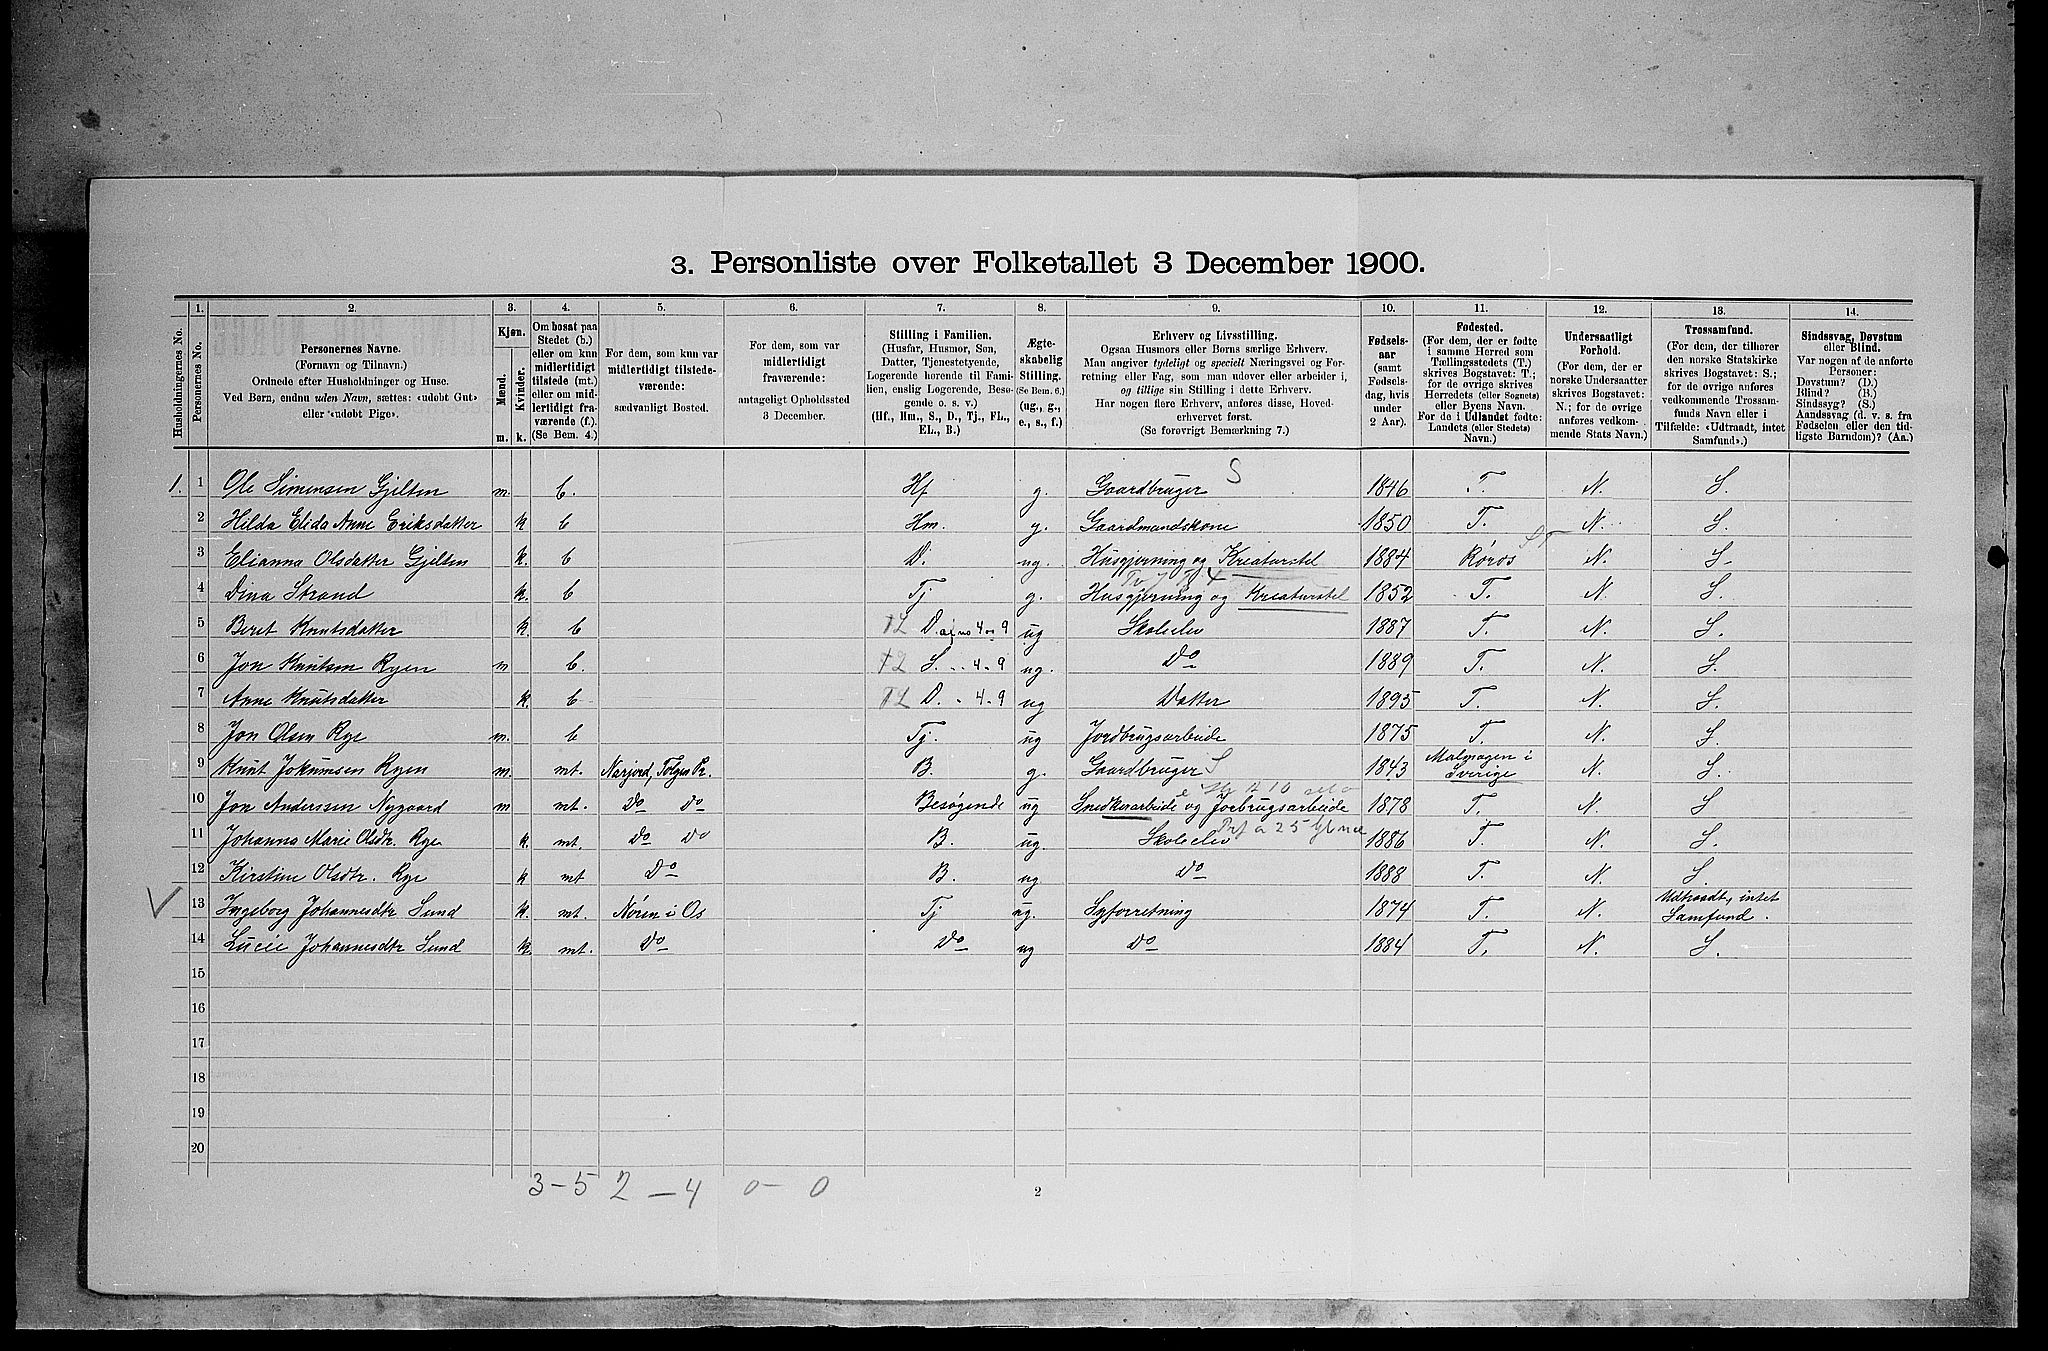 3. Personliste over Folketallet 3 December 1900.
1. 2. 3. 4. 5. 6. 7. 8. 9. 10. 11. 12. 13. 14.
Husholdningernes No.
Personernes No.
Personernes Navne.
(Fornavn og Tilnavn.)
Ordnede efter Husholdninger og Huse.
Ved Børn, endnu uden Navn, sættes: «udøbt Gut»
eller «udøbt Pige».
Kjøn.
Mænd.
Kvinder.
m. k.
Om bosat paa
Stedet (b.)
eller om kun
midlertidigt
tilstede (mt.)
eller om mid-
lertidigt fra-
værende (f.).
(Se Bem. 4.)
For dem, som kun var
midlertidigt tilstede-
værende:
sædvanligt Bosted.
For dem, som var
midlertidigt
fraværende:
antageligt Opholdssted
3 December.
Stilling i Familien.
(Husfar, Husmor, Søn,
Datter, Tjenestetyende,
Logerende hørende til Fami-
lien, enslig Logerende, Besø-
gende o. s. v.)
(Hf., Hm., S., D., Tj., FL.,
EL., B.)
Ægte-
skabelig
Stilling.
(Se Bem. 6.)
(ug., g.,
e., s., f.)
Erhverv og Livsstilling.
Ogsaa Husmors eller Børns særlige Erhverv.
Man angiver tydeligt og specielt Næringsvei og For-
retning eller Fag, som man udøver eller arbeider i,
og tillige sin Stilling i dette Erhverv.
Har nogen flere Erhverv, anføres disse, Hoved-
erhvervet først.
(Se forøvrigt Bemærkning 7.)
Fødsels-
aar
(samt
Fødsels-
dag, hvis
under
2 Aar).
Fødested.
(For dem, der er fødte
i samme Herred som
Tællingsstedets (T.)
skrives Bogstavet: T.;
for de øvrige skrives
Herredets (eller Sognets)
eller Byens Navn.
For de i Udlandet fødte:
Landets (eller Stedets)
Navn.)
Undersaatligt
Forhold.
(For dem, der er
norske Undersaatter
skrives Bogstavet:
N.; for de øvrige
anføres vedkom-
mende Stats Navn.)
Trossamfund.
(For dem, der tilhører
den norske Statskirke
skrives Bogstavet: S.;
for de øvrige anføres
vedkommende Trossam-
funds Navn eller i
Tilfælde: «Udtraadt, intet
Samfund».)
Sindssvag, Døvstum
eller Blind.
Var nogen af de anførte
Personer:
Døvstum? (D.)
Blind? (B.)
Sindssyg? (S.)
Aandssvag (d. v. s. fra
Fødselen eller den tid-
ligste Barndom)? (Aa.)
1. 1 Ole Simensen Gjelten m. b. Hf g. Gaardbruger S 1846 T. N. S.
2 Hilda Elida Anne Eriksdatter k b Hm. g. Gaardmandskone 1850 T. N. S.
3 Elianna Olsdatter Gjelten k. b D. ug. Husgjerning og Kreaturstel 1884 Røros N. S.
4 Dina Strand k. b Tj g. Husgjerning og Kreaturstel 1852 T. N. S.
5 Beret Knutsdatter k. b D. af no 4 og 9 ug Skoleelev 1887 T. N. S.
6 Jon Knutsen Ryen m b. S. " 4-9 ug. Do 1889 T. N. S.
7 Anne Knutsdatter k. b D. " 4-9 ug Datter 1895 T. N. S.
8 Jon Olsen Rye m. b Tj. ug Jordbrugsarbeide 1875 T. N. S.
9 Knut Jokumsen Ryen m. mt. Narjord, Tolgen Pr. B. g. Gaardbruger S 1843 Malmagen i Sverige N. S.
10 Jon Anderssen Nygaard m mt. Do Do Besøgende ug Snedkerarbeide og Jorbrugsarbeide 1878 T. N. S.
11 Johanna Marie Olsdtr. Rye k. mt. Do Do B. ug. Skoleelev 1886 T. N. S.
12 Kirstine Olsdtr. Rye k mt Do B. ug Do 1888 T. N. S
13 Ingeborg Johannesdtr Sund k. mt. Nøren i Os Tj ug. Syforretning 1874 T. N. Udtraadt, intet Samfund.
14 Lucie Johannesdtr Sund k. mt. Do Do ug Do 1884 T. N. S.
15
16
17
18
19
20
3-5 2-4 0-0
2